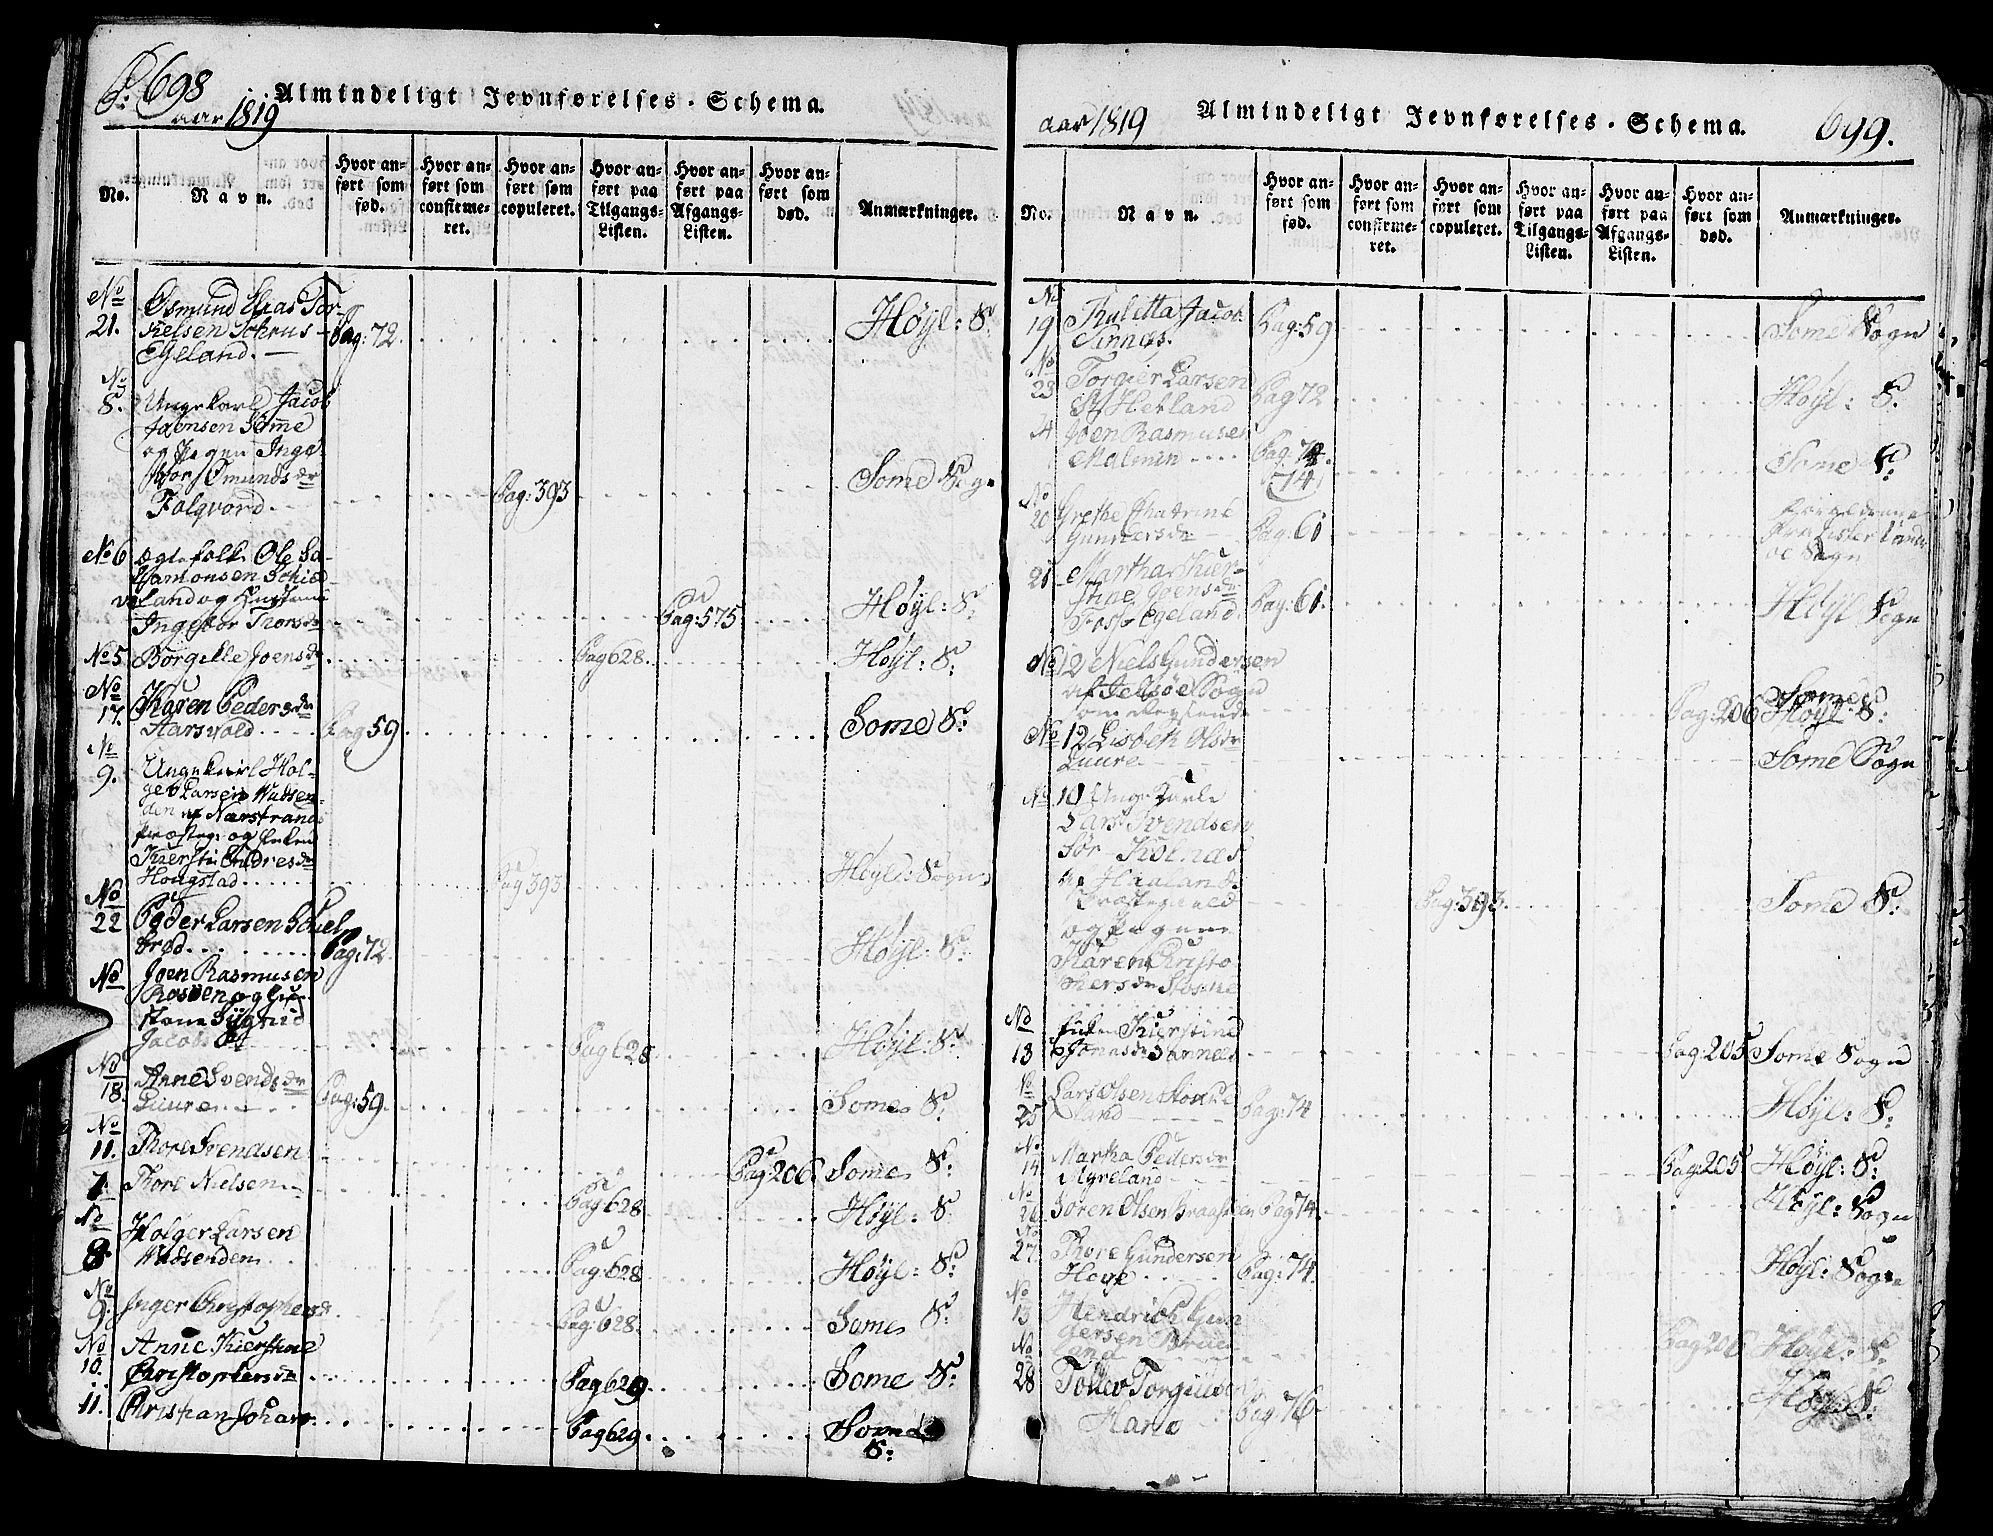 P: 698
Almindeligt Jevnførelses-Schema.
aar 1819
No.
Navn.
Hvor anført som fød.
Hvor anført som confirmeret.
Hvor anført som copuleret.
Hvor anført paa Tilgangs-Listen.
Hvor anført paa Afgangs-Listen.
Hvor anført som død.
Anmærkninger.
No
21.
Osmund Elias Tor-
kelsen
Egeland. Pag: 72. Høyl: S:
No
8. Ungekarl Jacob
Joensen Somme
og Pigen Inge-
bor Omundsdr
Folqvord. Pag: 393 Some Sogn
No 6 Ægtefolk Ole Sa-
land og Hustrue
Ingebor Thorsdr Pag: 575 Høyl: S:
No 5 Borgille Joensdr Pag 628. Høyl: S:
No
17. Karen Pedersdr
Aarsvold Pag 59. Some S:
No
9. Ungekarl Hol-
ger Larsen Wadsen-
den af Nærstrands
Præsteg: og Pigen
Kiersti Endresdr
Hougstad Pag 393 Høyl: Sogn
No
22 Peder Larsen Skiel-
brød. Pag: 72. Høyl: S:
No
Joen Rasmusen
Rosven og Hu-
stroe Sygnid
Jacobsdr Pag 628 Høyl: S:
No
18. Anne Svendsdr
Luure Pag: 59. Some S:
No
11. Thore Svendsen Pag: 206. Some S:
7. Thore Nielsen Pag 628 Høyl: S:
No
8. Holger Larsen
Wadsenden Pag: 628 Høyl: S:
No
9. Inger Christophersdr Pag: 628. Some S:
No
10. Anne Kierstine
Christophersdr Pag 629 Some S:
11. Christian Johan Pag 629. Some
S:
aar 1819
Almindeligt Jevnførelses-Schema.
699.
No.
Navn.
Hvor anført som fød.
Hvor anført som confirmeret.
Hvor anført som copuleret.
Hvor anført paa Tilgangs-Listen.
Hvor anført paa Afgangs-Listen.
Hvor anført som død.
Anmærkninger.
No
19 Jacob-
Sinnes. Pag: 59 Some Sogn
No
23 Torgier Larsen
St Hetland Pag 72 Høyl: S:
Joen Rasmusen
Malmin Pag. 74. Some S:
(74)
No
20 Grethe Chatrine
Gunnersdr Pag. 61
Sogn
21 Martha Kier-
stine Joensdr
Fosse Egeland. Pag: 61. Høyl Sogn
No 12 Niels Gundersen
af Jelsøe Sogn
Pag: 206 Høyl: S:
No 12 Lisbeth Olsdr
Luure Some Sogn
No 10 Unge Karle
Lars Svendsen
Sør Kolnæs
af Haaland
Præstegield Pag: 393. Some S:
og Pigene
Karen Christo-
phersdr Stosne
No
13 Pigen Kierstine
Jonasdr Sannes Pag: 205 Some Sogn
No
25 Lars Olsen
land Pag: 74 Høyl: S:
No
14 Martha Pedersdr
Myreland Pag: 205 Høyl: S:
No
26 Soren Olsen Braasteen Pag 74. Høyl: Sogn
No
27 Thore Gundersen
Høye Pag: 74. Høyl: Sogn
No
13 Hendrich Gun-
dersen Brue-
land Pag 206 Høyl: S:
No
28 Tollev Torgiulsen
Hana Pag: 76. Høyl S: